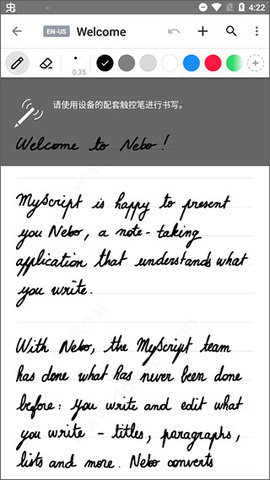 4:22
EN-US Welcome
0.35
请使用设备的配套触控笔进行书写。
Welcome to Nebo!
MyScript is happy to present
you Nebo, a note-taking
application that understands what
you write.
With Nebo, the MyScript team
has done what has never been done
before: you write and edit what
you write - titles, paragraphs,
lists and more. Nebo converts